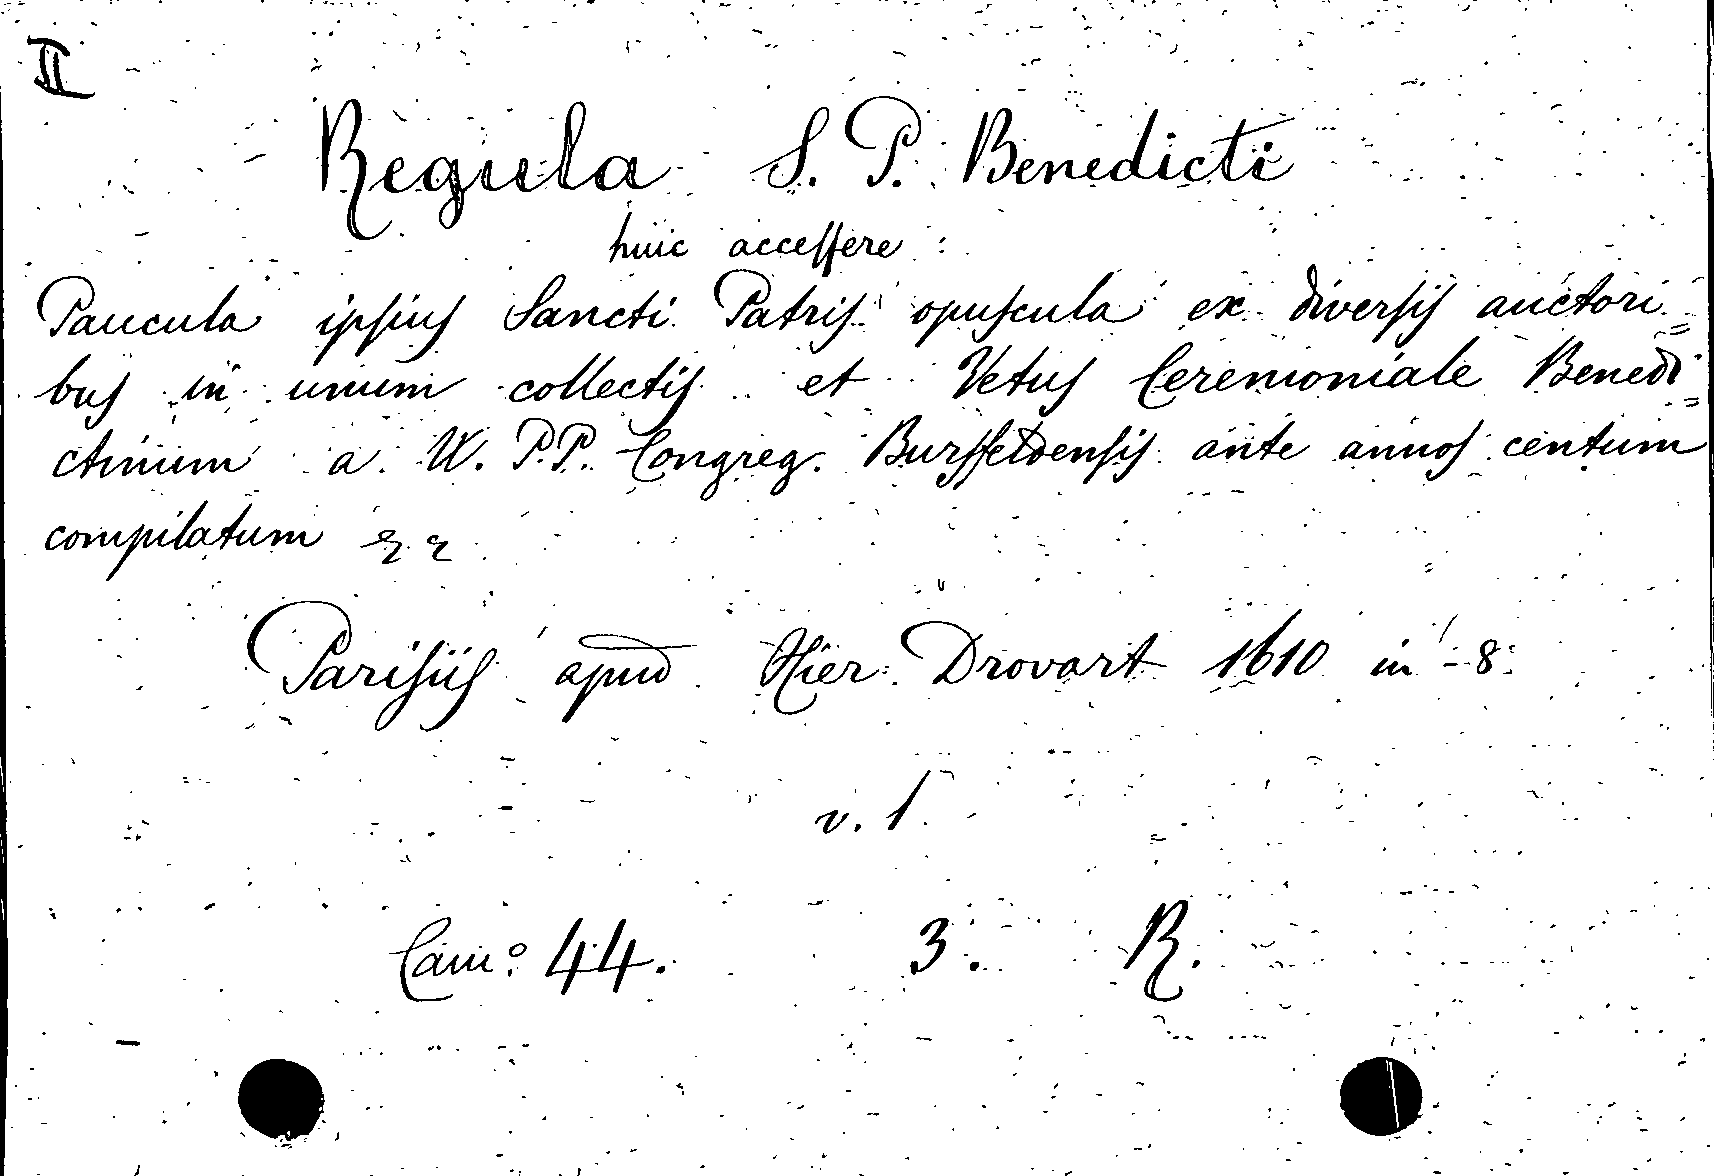 II
Regula S. P. Benedicti
huic accessere:
Paucula ipsius Sancti Patris opuscula ex diversis auctori=
bus in unum collectis et Vetus Ceremoniale Benedi=
ctinum a V. P.P. Congreg. Bursfeldensis ante annos centum
compilatum
Parisiis apud Hier. Drovart 1610 in-8
v. 1
44. 3. R.